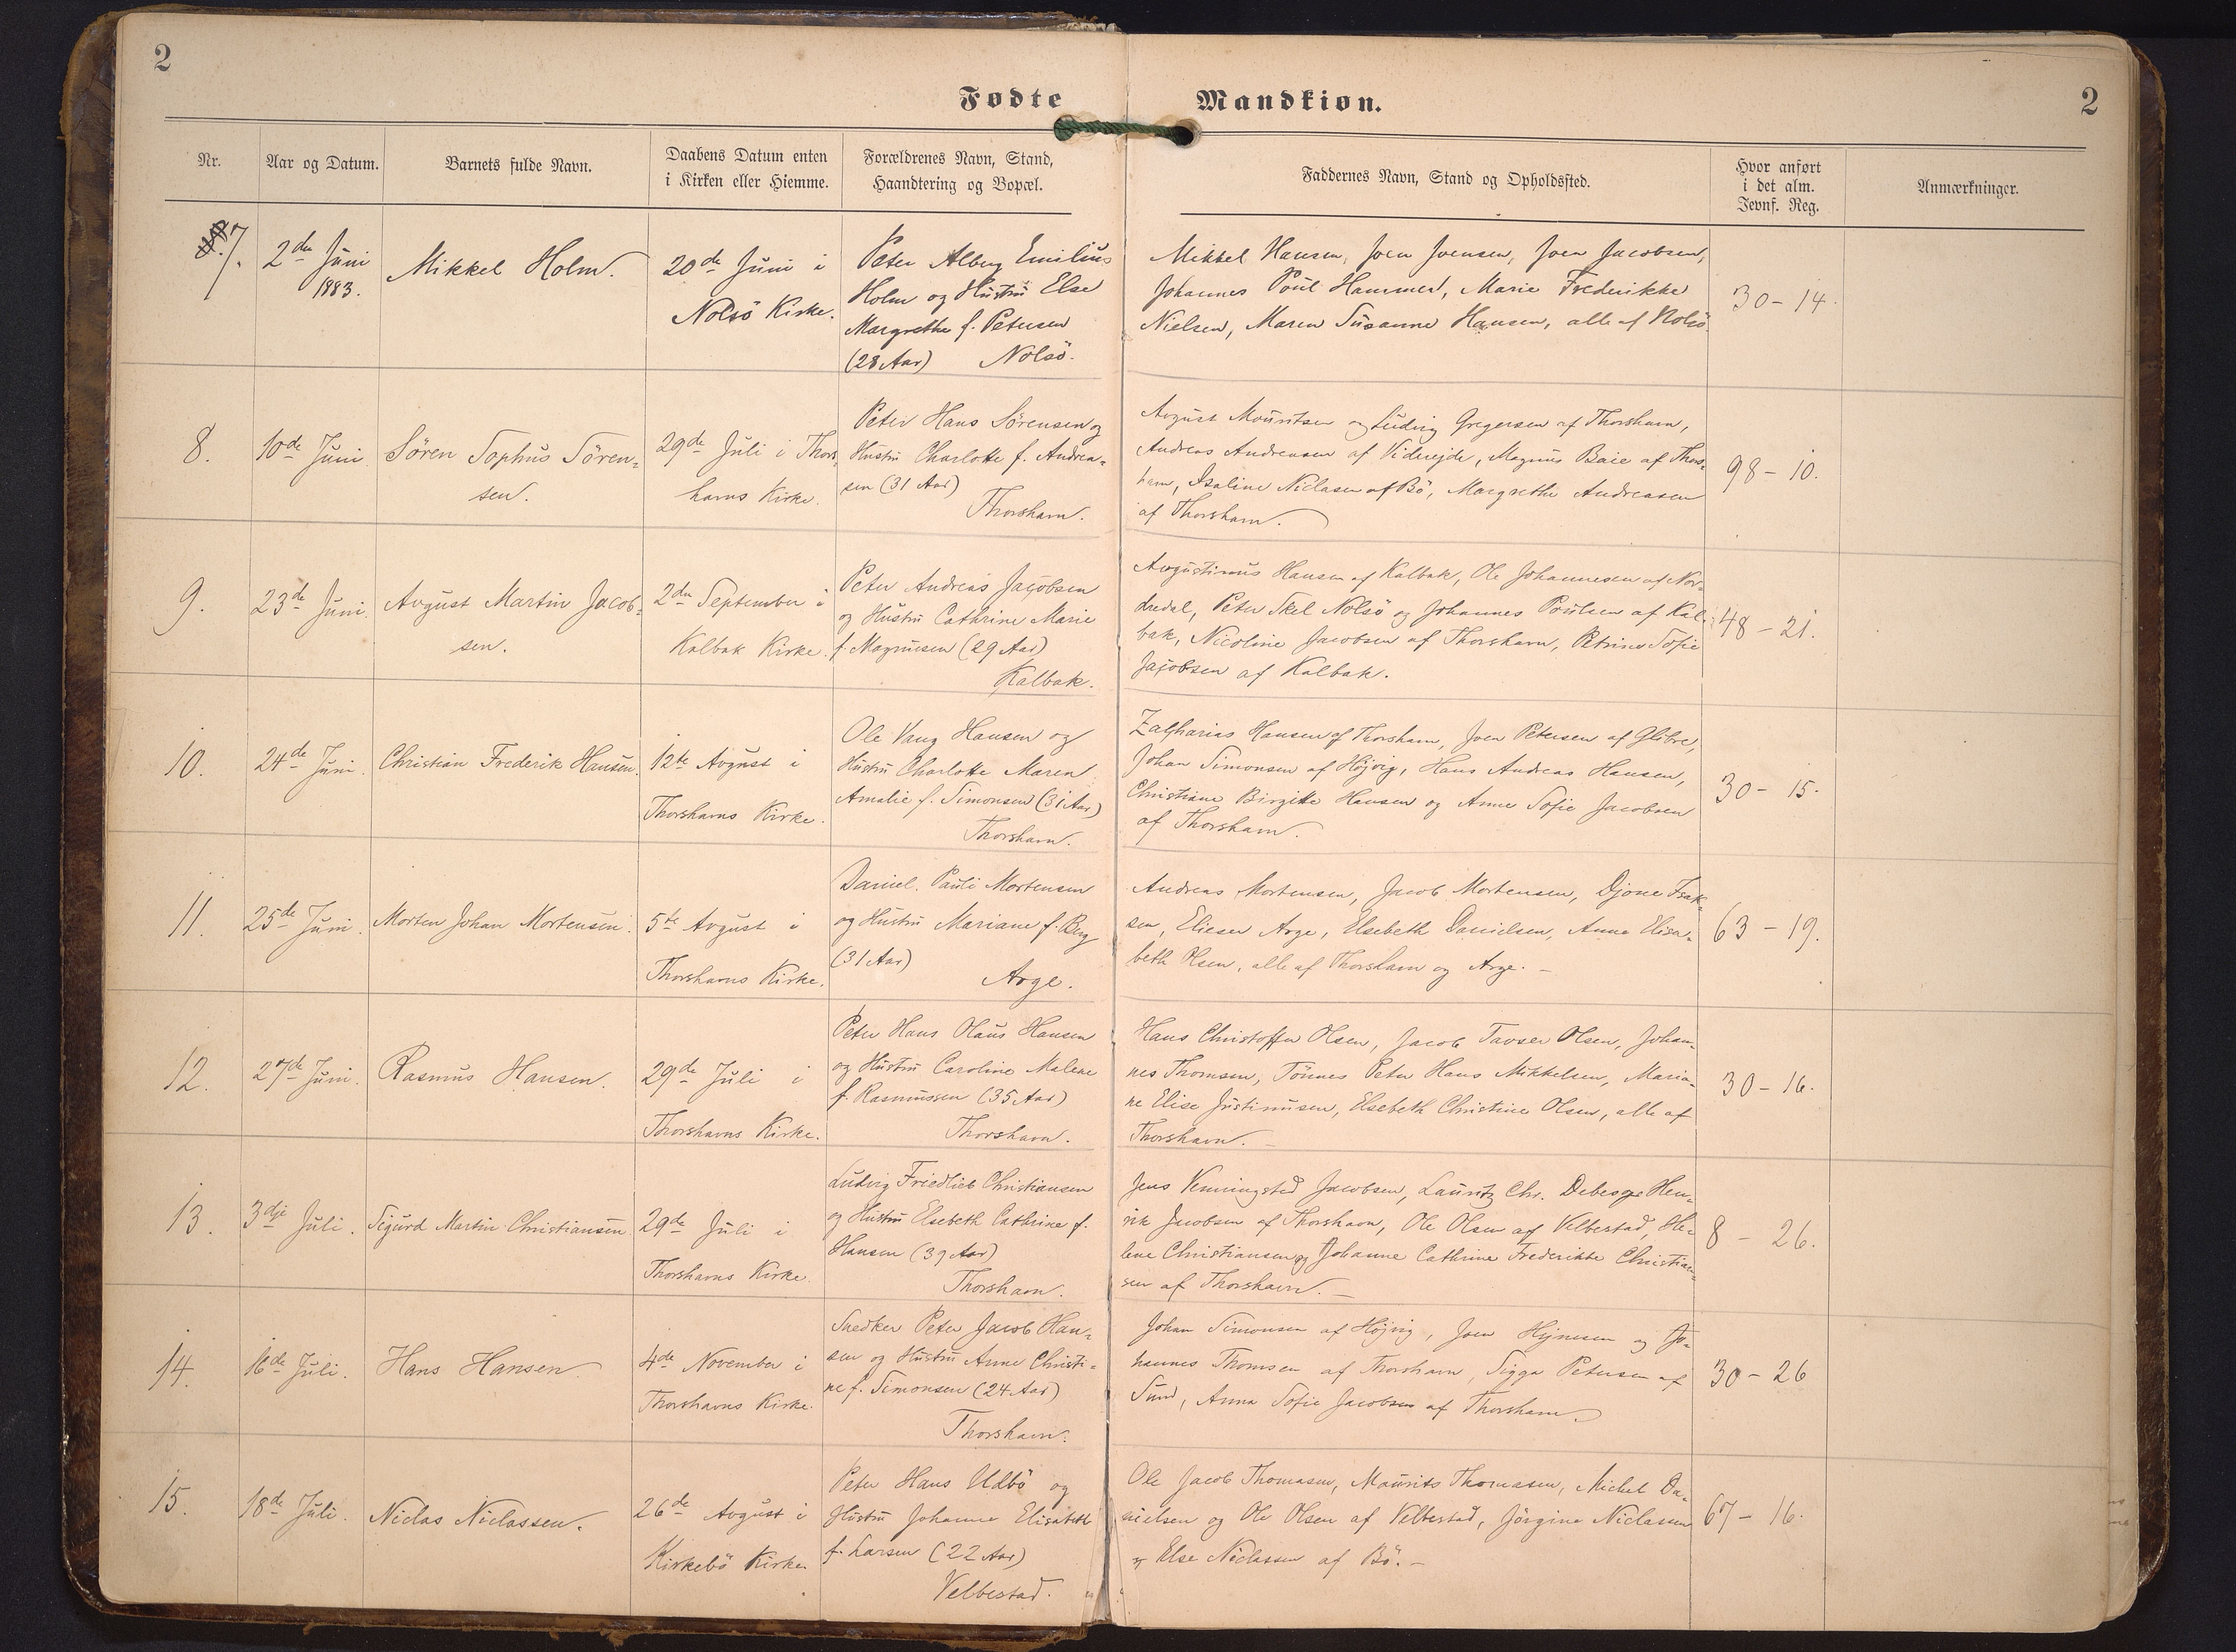 2
Fødte Mandkiøn.
2
Nr.
Aar og Datum.
Barnets fulde Navn.
Daabens Datum enten
i Kirken eller Hiemme.
Forældrenes Navn, Stand,
Haandtering og Bopæl.
Faddernes Navn, Stand og Opholdssted.
Hvor anført
i det alm.
Jevnf. Reg.
Anmærkninger.
7.
2den Juni
1883.
Mikkel Holm.
20de Juni i
Nolsö Kirke.
Peter Alberg Emilius
Holm og Hustru Else
Margrethe f. Petersen
(28 Aar) Nolsö.
Mikkel Hansen, Joen Joensen, Joen Jacobsen,
Johannes Poul Hammer, Marie Frederikke
Nielsen, Maren Susanne Hansen, alle af Nolsö
30 – 14.
8.
10de Juni
Sören Sophus Sören-
sen.
29de Juli i Thors-
havns Kirke.
Peter Hans Sörensen og
Hustru Charlotte f. Andrea-
sen (31 Aar)
Thorshavn.
August Mouritsen og Ludvig Gregersen af Thorshavn,
Andreas Andreasen af Videreide, Magnus Baie af Thors-
havn, Isaline Niclasen af Bö, Margrethe Andreasen
af Thorshavn.
98 – 10.
9.
23de Juni.
August Martin Jacob-
sen.
2den September i
Kalbak Kirke.
Peter Andreas Jacobsen
og Hustru Cathrine Marie
f. Magnusen (29 Aar)
Kalbak.
Augustinus Hansen af Kalbak, Ole Johannesen af Nor-
dredal, Peter Skel Nolsö og Johannes Poulsen af Kal-
bak, Nicoline Jacobsen af Thorshavn, Petrine Sofie
Jacobsen af Kalbak.
48 – 21.
10.
24de Juni.
Christian Frederik Hansen.
12te August i
Thorshavns Kirke.
Ole Vang Hansen og
Hustru Charlotte Maren
Amalie f. Simonsen (31 Aar)
Thorshavn.
Zacharias Hansen af Thorshavn, Joen Petersen af Glibre,
Johan Simonsen af Höjvig, Hans Andreas Hansen,
Christiane Birgitte Hansen og Anne Sofie Jacobsen
af Thorshavn.
30 – 15.
11.
25de Juni.
Morten Johan Mortensen.
5te August i
Thorshavns Kirke.
Daniel Pauli Mortensen
og Hustru Mariane f. Berg
(31 Aar)
Arge.
Andreas Mortensen, Jacob Mortensen, Djone Isak-
sen, Elieser Arge, Elsebeth Danielsen, Anna Elisa-
beth Olsen, alle af Thorshavn og Arge. –
63 – 19.
12.
27de Juni.
Rasmus Hansen.
29de Juli i
Thorshavns Kirke.
Peter Hans Olaus Hansen
og Hustru Caroline Malene
f. Rasmussen (35 Aar)
Thorshavn.
Hans Christoffer Olsen, Jacob Tavser Olsen, Johan-
nes Thomsen, Tönnes Peter Hans Mikkelsen, Maria-
ne Elise Justinusen, Elsebeth Christine Olsen, alle af
Thorshavn. –
30 – 16.
13.
3dje Juli.
Sigurd Martin Christiansen
29de Juli i
Thorshavns Kirke.
Ludvig Friedlieb Christiansen
og Hustru Elsebeth Cathrine f.
Hansen (39 Aar)
Thorshavn.
Jens Venningsted Jacobsen, Lauritz Chr. Debes og Hen-
rik Jacobsen af Thorshavn, Ole Olsen af Velbestad, He-
lene Christiansen og Johanne Cathrine Frederikke Christian-
sen af Thorshavn. –
8 – 26.
14.
16de Juli.
Hans Hansen
4de November i
Thorshavns Kirke.
Snedker Peter Jacob Han-
sen og Hustru Anne Christi-
ne f. Simonsen (24 Aar)
Thorshavn.
Johan Simonsen af Höjvig, Joen og Jo-
hannes Thomsen af Thorshavn, Sigga Petersen af
Sund, Anna Sofie Jacobsen af Thorshavn.
30 – 26
15.
18de Juli.
Niclas Niclassen.
26de August i
Kirkebö Kirke
Peter Hans Udbö og
Hustru Johanne Elisabeth
f. Larsen (22 Aar)
Velbestad.
Ole Jacob Thomasen, Maurits Thomasen, Michel Da-
nielsen og Ole Olsen af Velbestad, Jörgine Niclassen
og Else Niclassen af Bö. –
67 – 16.